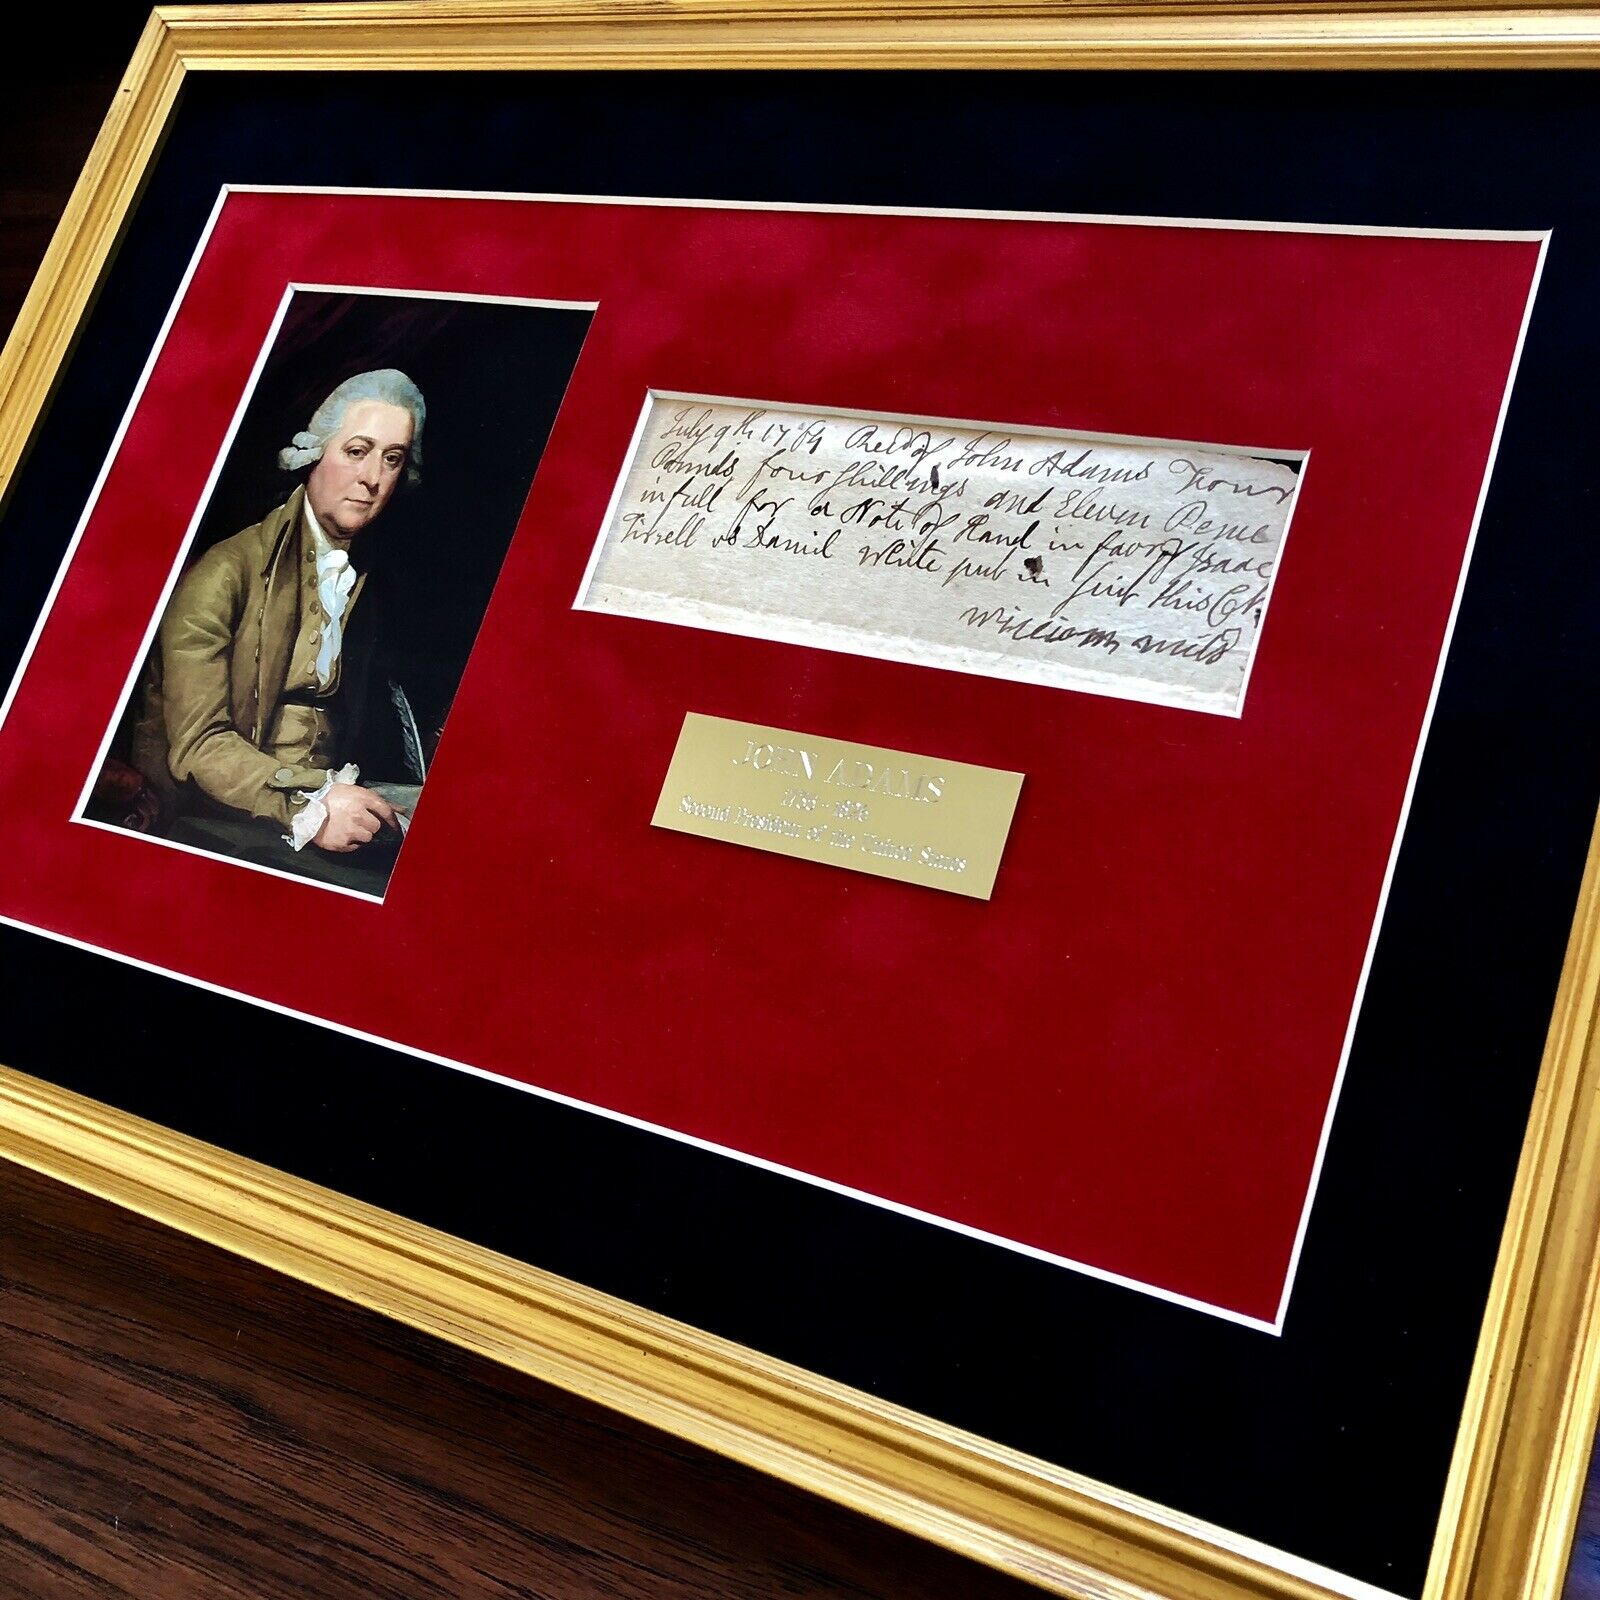 July 9th 1764 Recd of John Adams Four
Pounds four shillings and Eleven Pence
in full for a Note of Hand in favor of Isaac
Tirrell vs Daniel White put in suit this Crt.
William
JOHN ADAMS
Second President of the United States